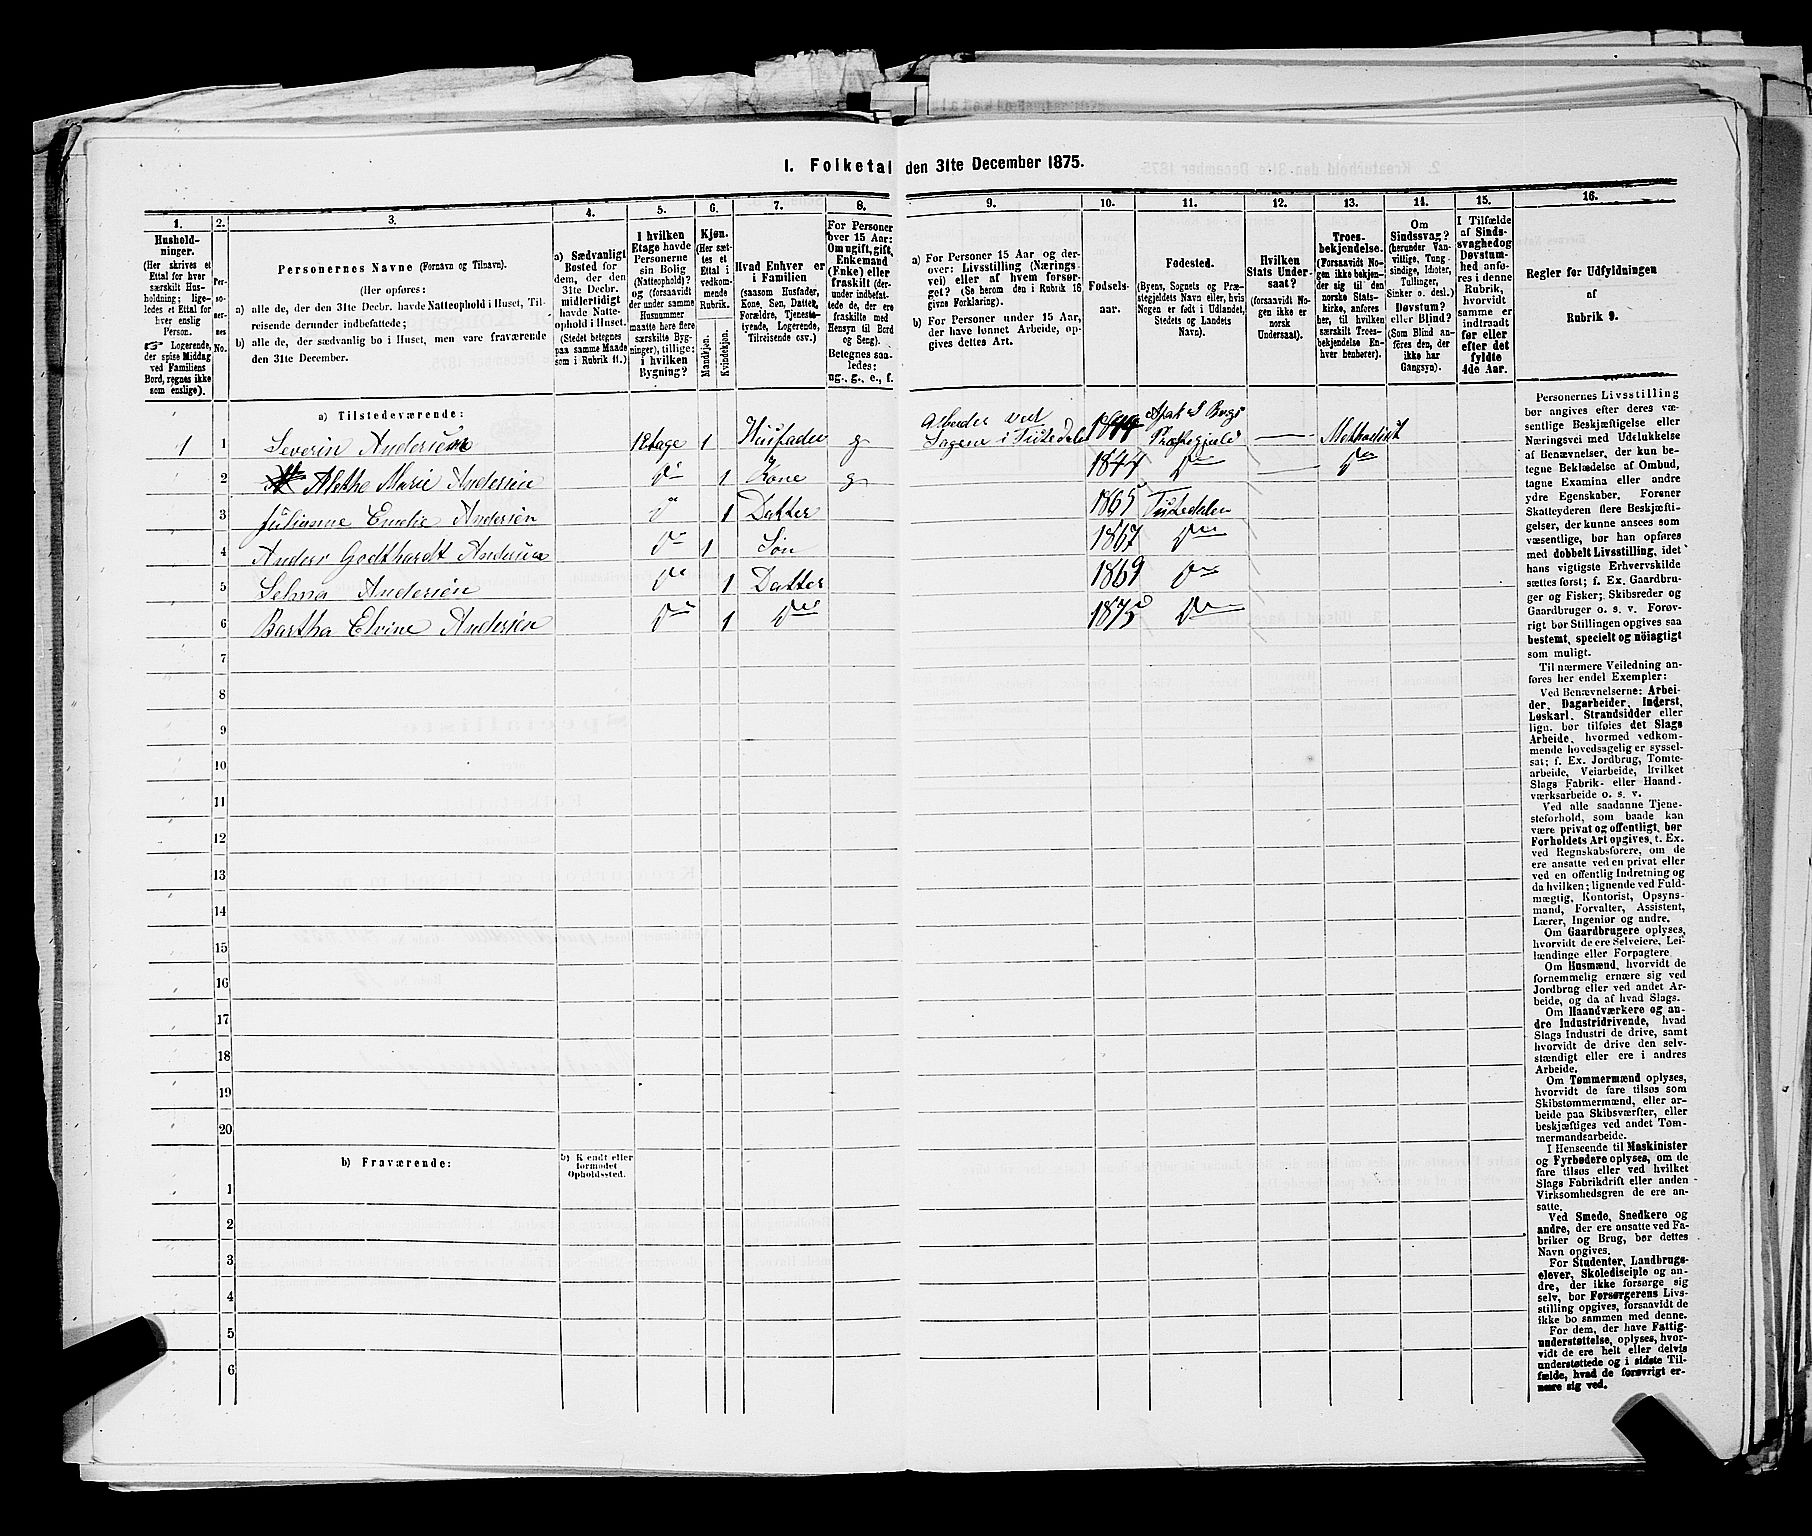 1. Folketal den 31te December 1875.
1. 2. 3. 4. 5. 6. 7. 8. 9. 10. 11. 12. 13. 14. 15. 16.
Hushold-
ninger.
(Her skrives et
Ettal for hver
særskilt Hus-
holdning; lige-
ledes et Ettal for
hver enslig
Person.
Logerende,
der spise Middag
ved Familiens
Bord, regnes ikke
som enslige).
Per-
so-
ner-
nes
No.
Personernes Navne (Fornavn og Tilnavn).
(Her opføres:
a) alle de, der den 31te Decbr. havde Natteophold i Huset, Til-
reisende derunder indbefattede;
b) alle de, der sædvanlig bo i Huset, men vare fraværende
den 31te December.
a) Sædvanligt
Bosted for
dem, der den
31te Decbr.
midlertidigt
havde Natte-
ophold i Huset.
(Stedet betegnes
paa samme Maade
som i Rubrik 11.)
I hvilken
Etage havde
Personerne
sin Bolig
(Natteophold)?
og (forsaavidt
der under samme
Husnummer
maatte høre flere
særskilte Byg-
ninger), tillige:
i hvilken
Bygning?
Kjøn.
(Her sæt-
tes et
Ettal i
vedkom-
mende
Rubrik.
Mandkjøn.
Kvindekjøn.
Hvad Enhver er
i Familien
(saasom Husfader,
Kone, Søn, Datter,
Forældre, Tjeneste-
tyende, Logerende,
Tilreisende osv.).
For Personer
over 15 Aar:
Om ugift, gift,
Enkemand
(Enke) eller
fraskilt (der-
under indbefat-
tede de, der ere
fraskilte med
Hensyn til Bord
og Seng).
Betegnes saa-
ledes:
ug., g., e., f.
a) For Personer 15 Aar og der-
over: Livsstilling (Nærings-
vei) eller af hvem forsør-
get? (Se herom den i Rubrik 16
givne Forklaring).
b) For Personer under 15 Aar,
der have lønnet Arbeide, op-
gives dettes Art.
Fødsels-
aar.
Fødested.
(Byens, Sognets og Præ-
stegjeldets Navn eller, hvis
Nogen er født i Udlandet,
Stedets og Landets
Navn).
Hvilken
Stats Under-
saat?
(forsaavidt No-
gen ikke er
norsk
Undersaat).
Troes-
bekjendelse.
(Forsaavidt No-
gen ikke bekjen-
der sig til den
norske Stats-
kirke, anføres
her, til hvilken
særskilt Troes-
bekjendelse En-
hver henhører).
Om
Sindssvag?
(herunder Van-
vittige, Tung-
sindige, Idioter,
Tullinger,
Sinker o. desl.)
Døvstum?
eller Blind?
(Som Blind an-
føres den, der
ikke har
Gangsyn).
I Tilfælde
af Sinds-
svaghed og
Døvstum-
hed anfø-
res i denne
Rubrik,
hvorvidt
samme er
indtraadt
før eller
efter det
fyldte
4de Aar.
Regler før Udfyldningen
af
Rubrik 9.
a) Tilstedeværende:
1 1 Severin Andersen 1 Etage 1 Husfader g Arbeider ved Sagene i Tistedalen 1844 Præstegjeld Methodist
2 Alethe Marie Andersen Do 1 Kone g 1844 Do Do
3 Julianne Emelie Andersen " 1 Datter 1865 Tistedalen
4 Anders Godthardt Andersen Do 1 Søn 1867 Do
5 Selma Andersen Do 1 Datter 1869 Do
6 Bartha Elvine Andersen Do 1 Do 1875 Do
7
8
9
10
11
12
13
14
15
16
17
18
19
20
b) Fraværende:
b) Kendt eller
formodet
Opholdssted.
1
2
3
4
5
6
Personernes Livsstilling
bør angives efter deres væ-
sentlige Beskjæftigelse eller
Næringsvei med Udelukkelse
af Benævnelser, der kun be-
tegne Beklædelse af Ombud,
tagne Examina eller andre
ydre Egenskaber. Forener
Skatteyderen flere Beskjæfti-
gelser, der kunne ansees som
væsentlige, bør han opføres
med dobbelt Livsstilling, idet
hans vigtigste Erhvervskilde
sættes først; f. Ex. Gaardbru-
ger og Fisker; Skibsreder og
Gaardbruger o. s. v. Forøv-
rigt bør Stillingen opgives saa
bestemt, specielt og nöiagtigt
som muligt.
Til nærmere Veiledning an-
føres her endel Exempler:
Ved Benævnelserne: Arbei-
der, Dagarbeider, Inderst,
Løskarl, Strandsidder eller
lign. bør tilføies det Slags
Arbeide, hvormed vedkom-
mende hovedsagelig er syssel-
sat; f. Ex. Jordbrug, Tomte-
arbeide, Veiarbeide, hvilket
Slags Fabrik- eller Haand-
værksarbeide o. s. v.
Ved alle saadanne Tjene-
steforhold, som baade kan
være privat og offentligt, bør
Forholdets Art opgives, t. Ex.
ved Regnskabsførere, om de
ere ansatte ved en privat eller
ved en offentlig Indretning og
da hvilken; lignende ved Fuld-
mægtig, Kontorist, Opsyns-
mand, Forvalter, Assistent,
Lærer, Ingeniør og andre.
Om Gaardbrugere oplyses,
hvorvidt de ere Selveiere, Lei-
lændinge eller Forpagtere.
Om Husmænd, hvorvidt de
fornemmelig ernære sig ved
Jordbrug eller ved andet Ar-
beide, og da af hvad Slags.
Om Haandværkere og an-
dre Industridrivende, hvad
Slags Industri de drive, samt
hvorvidt de drive den selv-
stændigt eller ere i andres
Arbeide.
Om Tømmermænd oplyses,
hvorvidt de fare tilsøs som
Skibstømmermænd, eller ar-
beide paa Skibsværfter, eller
beskjæftiges ved andet Tøm-
mermandsarbeide.
I Henseende til Maskinister
og Fyrbødere oplyses, om de
fare tilsøs eller ved hvilket
Slags Fabrikdrift eller anden
Virksomhedsgren de ere an-
satte.
Ved Smede, Snedkere og
andre, der ere ansatte ved Fa-
briker og Brug, bør dettes
Navn opgives.
For Studenter, Landbrugs-
elever, Skoledisciple og an-
dre, der ikke forsørge sig
selv, bør Forsørgerens Livs-
stilling opgives, forsaavidt de
ikke bo sammen med denne.
For dem, der have Fattig-
understøttelse, oplyses, hvor-
vidt de ere helt eller delvis
understøttede og i sidste Til-
fælde, hvad de forøvrigt er-
nære sig ved.